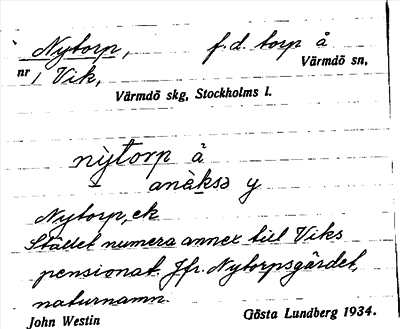 Nytorp, f.d. torp å
Värmdö sn,
nr 1 Vik,
Värmdö skg, Stockholms l.
nỳtorp å
anèksə y
Nytorp, ek
Stället numera annex till Viks
pensionat. Jfr. Nytorpsgärdet,
naturnamn.
John Westin Gösta Lundberg 1934.